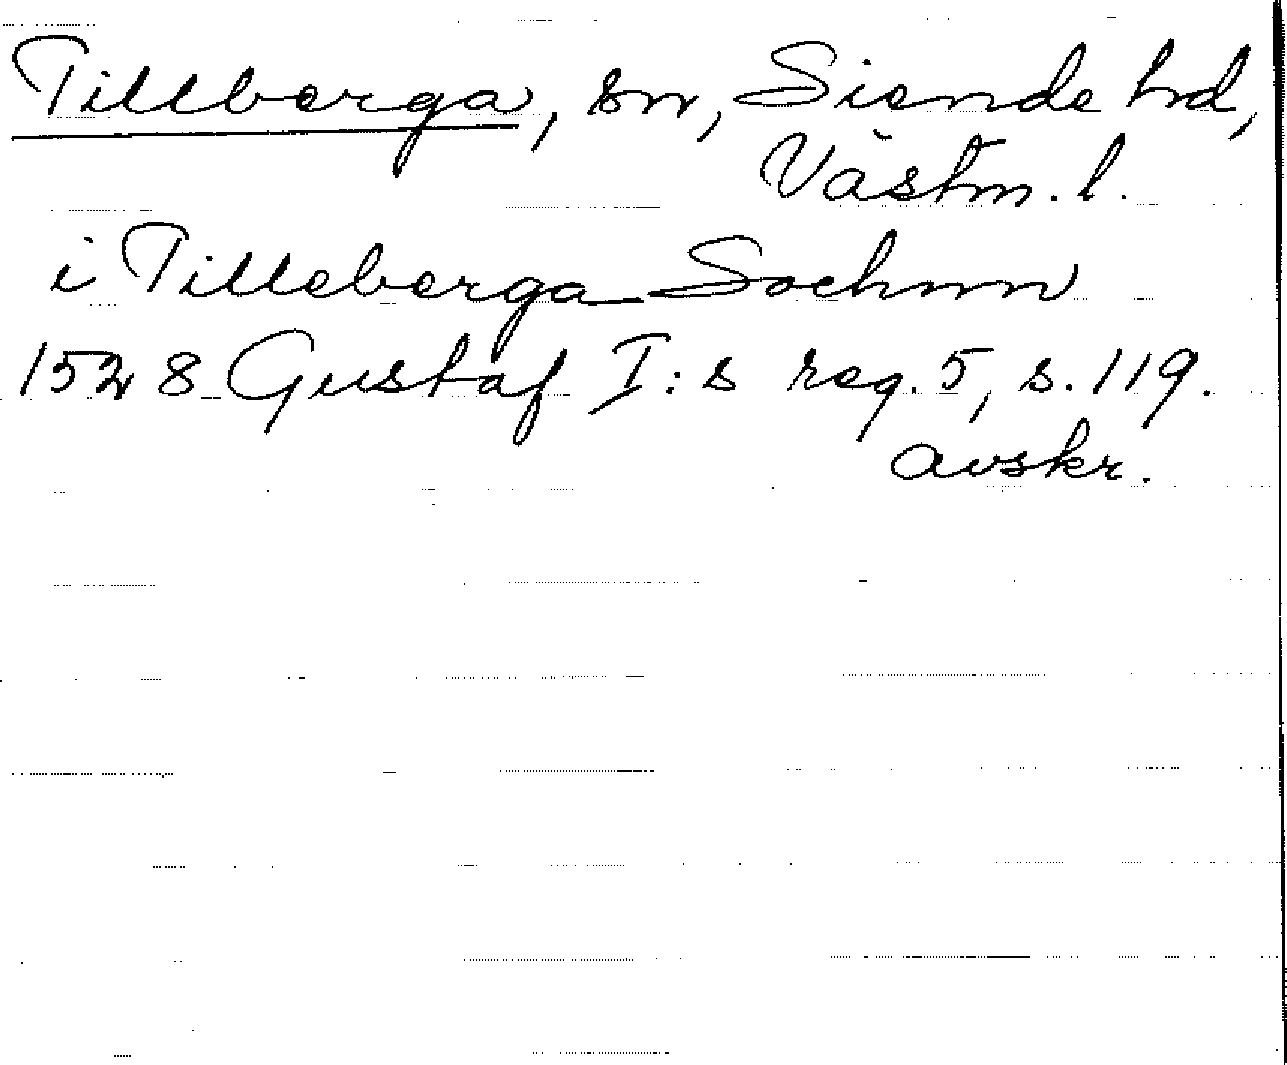 Tillberga, sn, Siende hd,
Västm. l.
i Tilleberga Sochnn
1528 Gustaf I:s reg. 5, s. 119.
avskr.